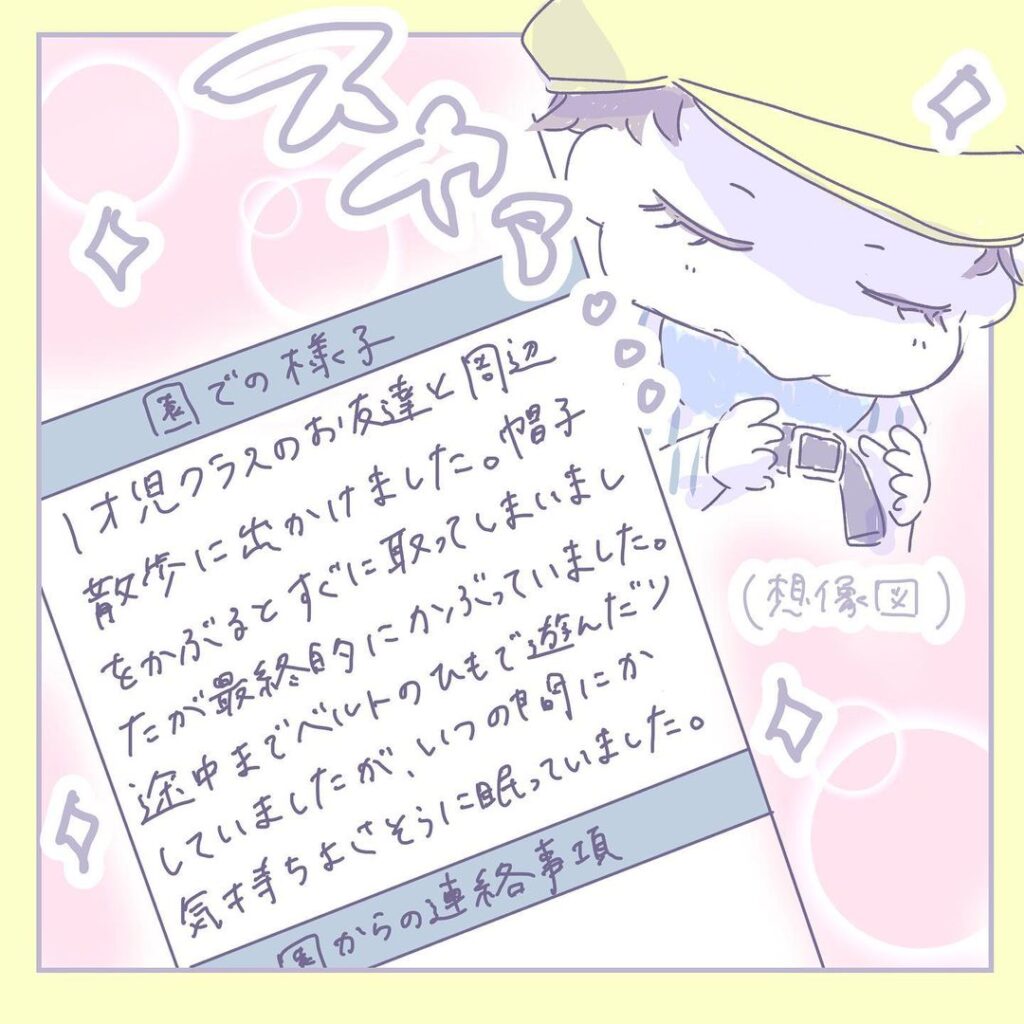 スヤァ
園での様子
1才児クラスのお友達と周辺
散歩に出かけました。帽子
をかぶるとすぐに取ってしまいまし
たが最終的にかぶっていました。
途中までベルトのひもで遊んだり
していましたが、いつの間にか
気持ちよさそうに眠っていました。
園からの連絡事項
(想像図)